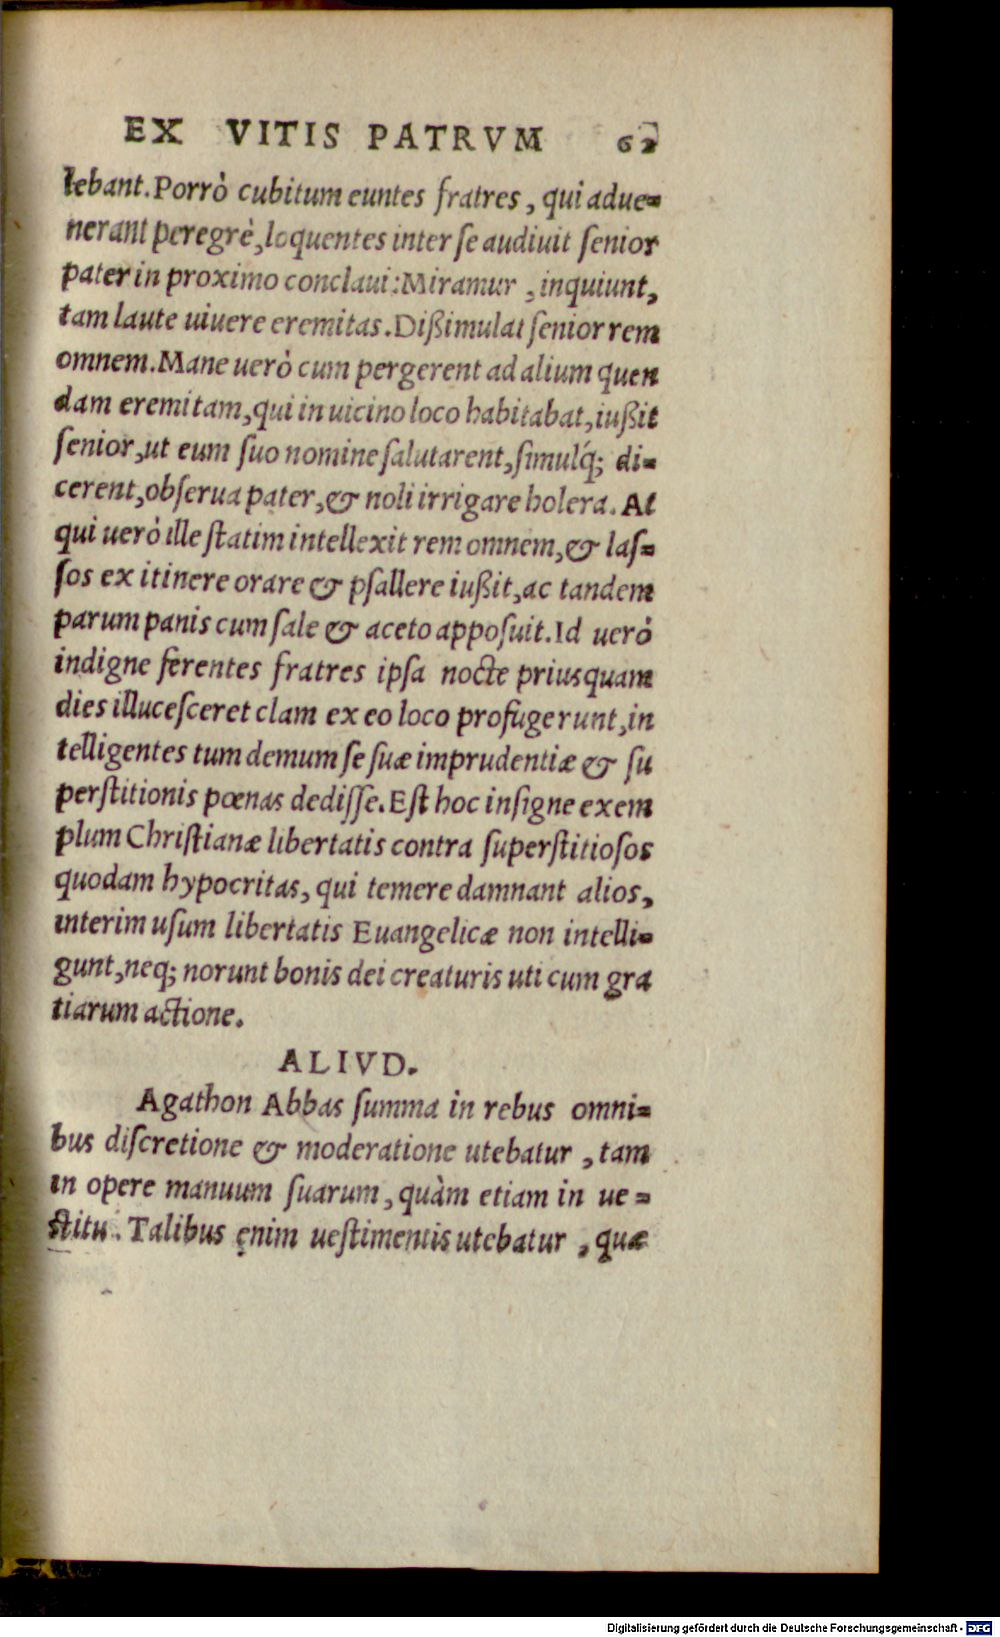 EX VITIS PATRVM 62
lebant. Porrò cubitum euntes fratres, qui adue=
nerant peregrè, loquentes inter se audiuit senior
pater in proximo conclaui: Miramur, inquiunt,
tam laute uiuere eremitas. Dißimulat senior rem
omnem. Mane uerò cum pergerent ad alium quen
dam eremitam, qui in uicino loco habitabat, iußit
senior, ut eum suo nomine salutarent, simulq́; di=
cerent, obserua pater, & noli irrigare holera. At
qui uerò ille statim intellexit rem omnem, & las=
sos ex itinere orare & psallere iußit, ac tandem
parum panis cum sale & aceto apposuit. Id uerò
indigne ferentes fratres ipsa nocte priusquam
dies illucesceret clam ex eo loco profugerunt, in
telligentes tum demum se suæ imprudentiæ & su
perstitionis pœnas dedisse. Est hoc insigne exem
plum Christianæ libertatis contra superstitiosos
quodam hypocritas, qui temere damnant alios,
interim usum libertatis Euangelicæ non intelli=
gunt, neq; norunt bonis dei creaturis uti cum gra
tiarum actione.
ALIVD.
Agathon Abbas summa in rebus omni=
bus discretione & moderatione utebatur, tam
in opere manuum suarum, quàm etiam in ue=
stitu. Talibus enim uestimentis utebatur, quæ
Digitalisierung gefördert durch die Deutsche Forschungsgemeinschaft - DFG